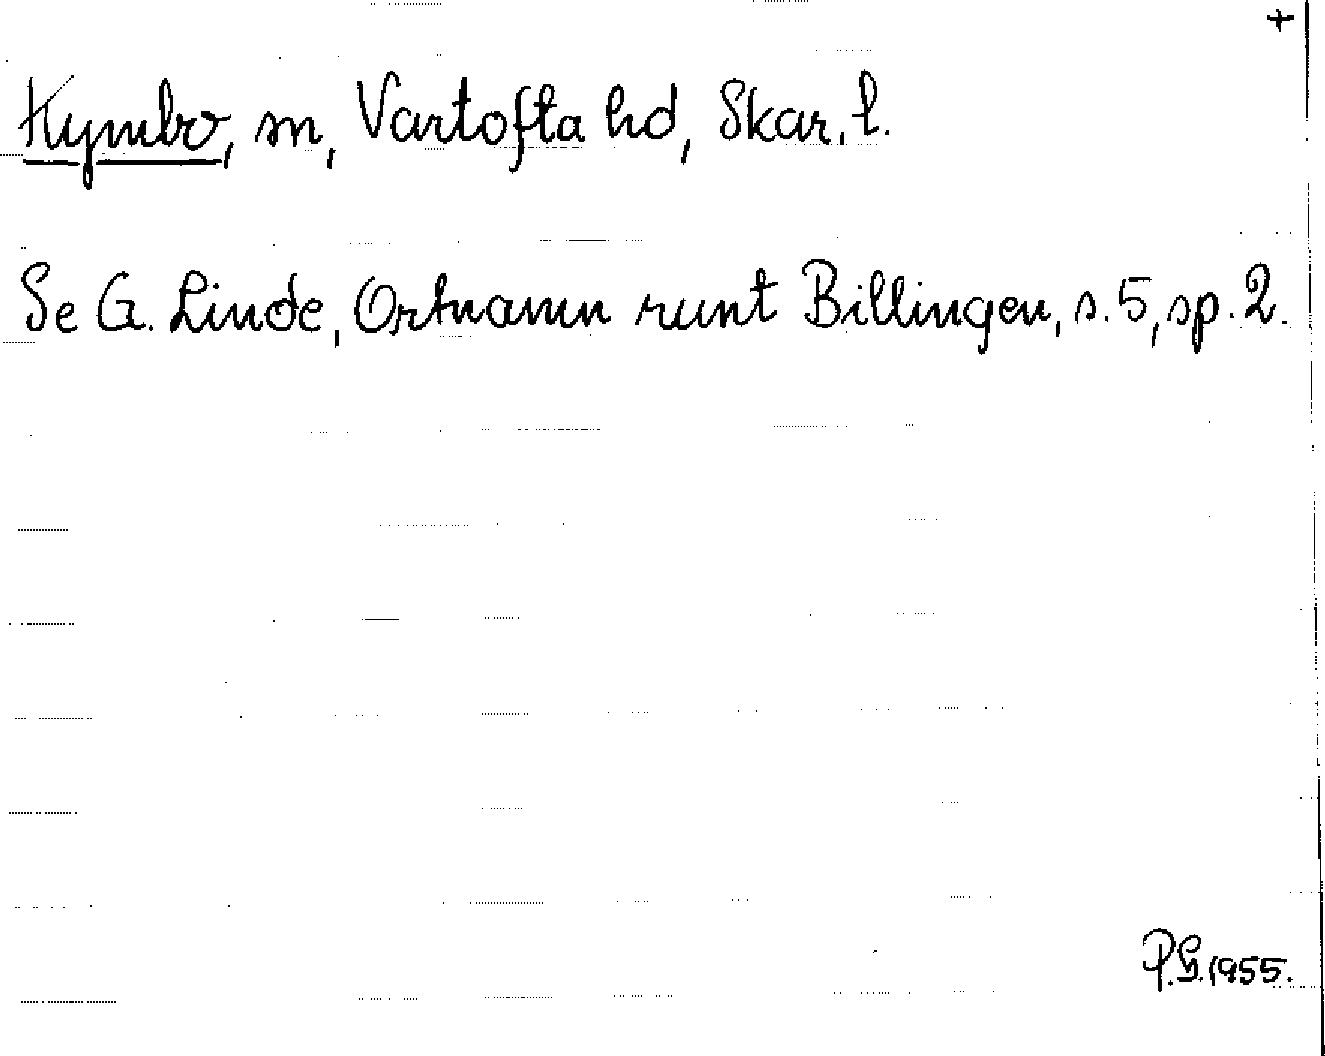 +
Kymbo, sn, Vartofta hd, Skar. l.
Se G. Linde, Ortnamn runt Billingen, s. 5, sp. 2.
P.G. 1955.